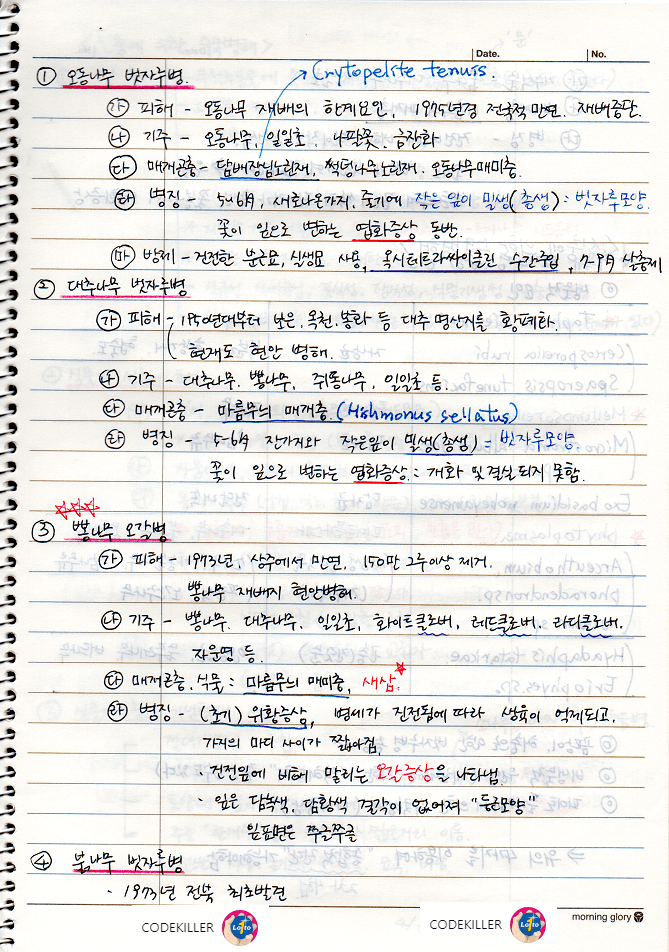 Date. No.
① 오동나무 빗자루병. → Crytopelite tenuis.
㉮ 피해 - 오동나무 재배의 한계요인, 1975년경 전국적 만연. 재배중단.
㉯ 기주 - 오동나무, 일일초, 나팔꽃, 금잔화
㉰ 매개곤충 - 담배장님노린재, 썩덩나무노린재, 오동나무매미충.
㉱ 병징 - 5~6月, 새로나온가지, 줄기에 작은잎이 밀생(총생) : 빗자루모양.
꽃이 잎으로 변하는 엽화증상 동반.
㉲ 방제 - 건전한 분근묘, 실생묘 사용, 옥시테트라싸이클린 수간주입, 7-9月 살충제
② 대추나무 빗자루병
㉮ 피해 - 1950년대부터 보은, 옥천, 봉화 등 대추 명산지를 황폐화.
현재도 현안 병해.
㉯ 기주 - 대추나무. 뽕나무, 쥐똥나무, 일일초 등.
㉰ 매개곤충 - 마름무늬 매개충. (Hishmonus sellatus)
㉱ 병징 - 5-6月 잔가지와 작은잎이 밀생(총생) = 빗자루모양.
꽃이 잎으로 변하는 엽화증상. : 개화 및 결실 되지 못함.
③ 뽕나무 오갈병
㉮ 피해 - 1973년, 상주에서 만연, 150만 그루이상 제거.
뽕나무 재배지 현안병해.
㉯ 기주 - 뽕나무. 대추나무. 일일초, 화이트클로버, 레드클로버. 라디클로버.
자운영 등.
㉰ 매개곤충, 식물 : 마름무늬 매미충, 새삼.
㉱ 병징 - (초기) 위황증상, 병세가 진전됨에 따라 생육이 억제되고.
가지의 마디 사이가 짧아짐,
· 건전잎에 비해 말리는 오갈증상을 나타냄.
· 잎은 담녹색, 담황색 결각이 없어져 "둥근모양"
잎표면은 쭈글쭈글
④ 붉나무 빗자루병
· 1973년 전북 최초발견
morning glory
CODEKILLER Lotto CODEKILLER Lotto